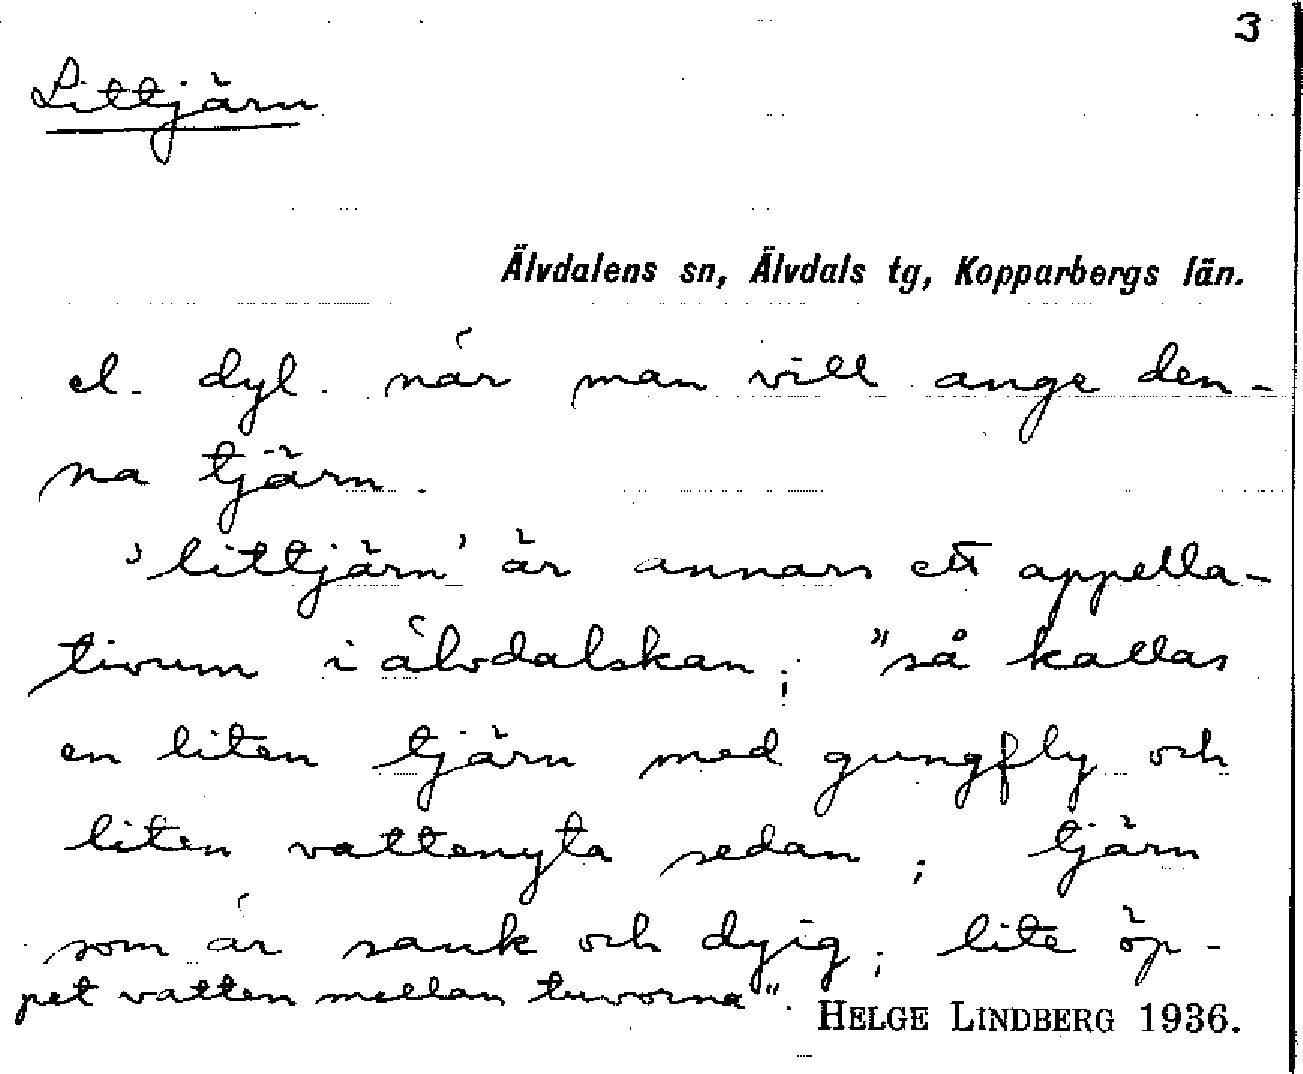 3
Littjärn
Älvdalens sn, Älvdals tg, Kopparbergs län.
el. dyl. när man vill ange den-
na tjärn.
'littjärn' är annars ett appella-
tivum i älvdalskan; "så kallas
en liten tjärn med gungfly och
liten vattenyta sedan; tjärn
som är sank och dyig; lite öp-
pet vatten mellan tuvorna".
HELGE LINDBERG 1936.